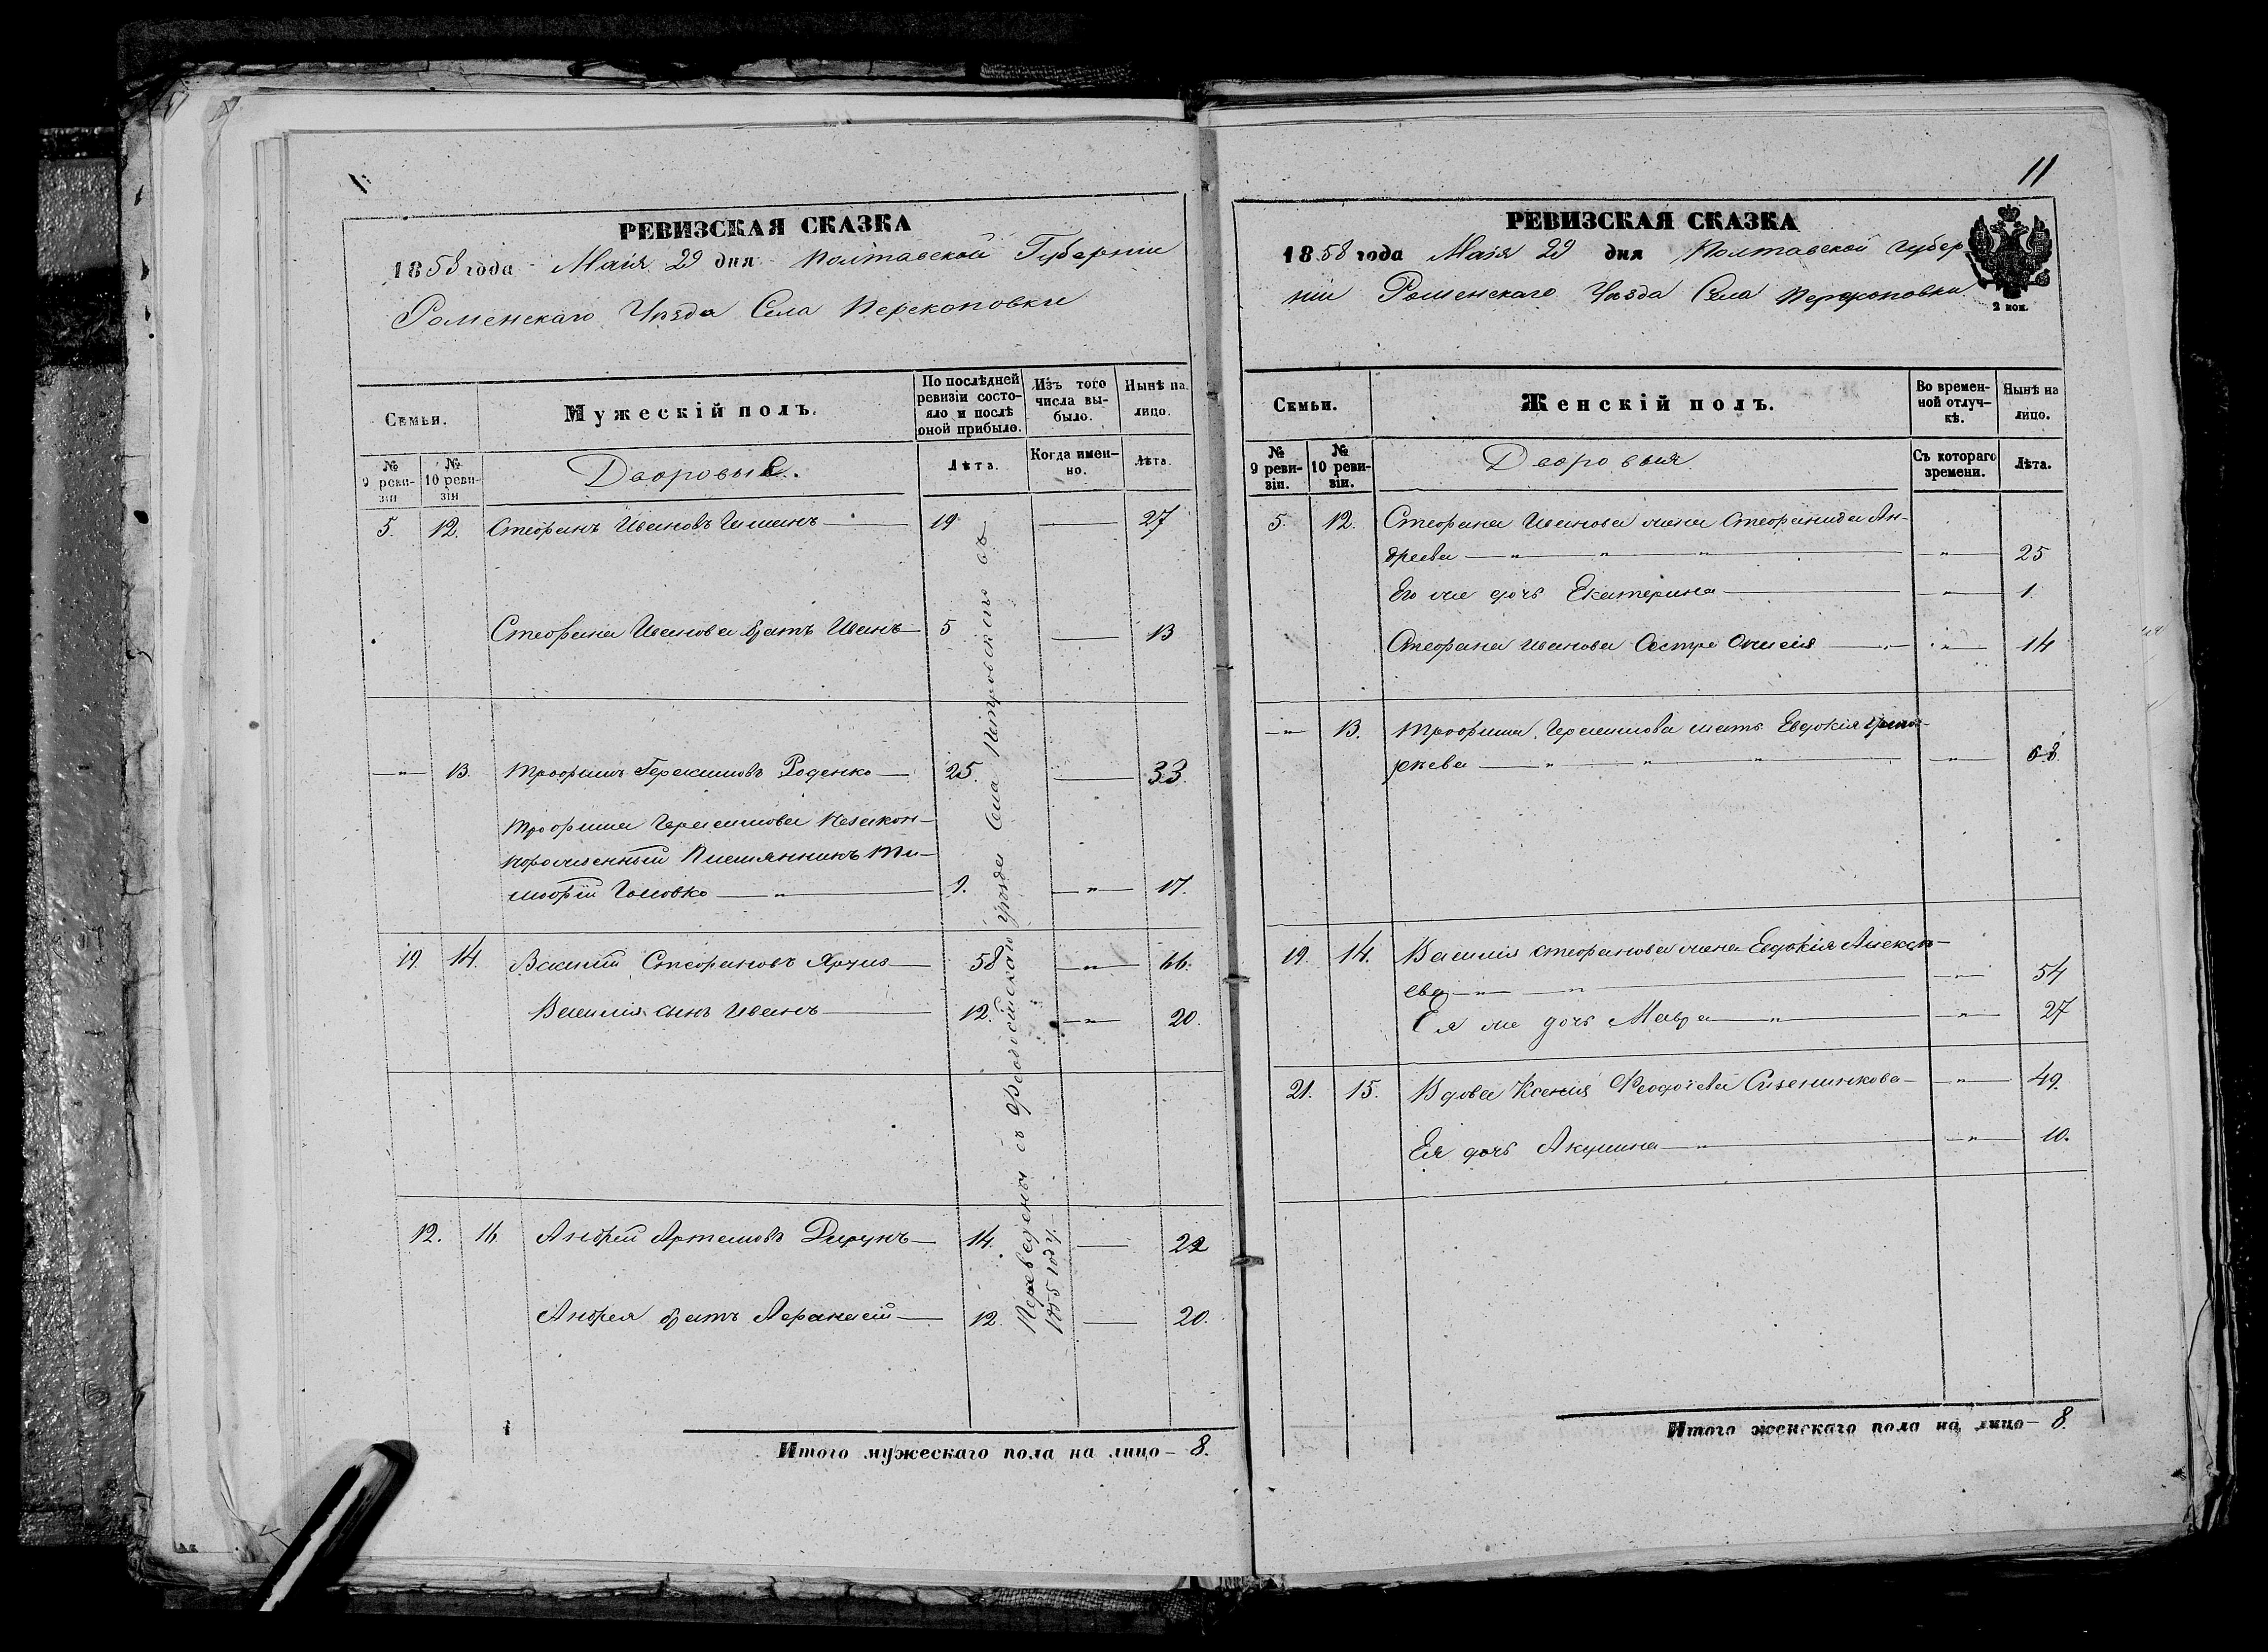 РЕВИЗСКАЯ СКАЗКА
1858 года Маія 29 дня Полтавской Губерніи
Роменскаго Уѣзда Села Перекоповки
Семьи.
Мужескій полъ.
По послѣдней ревизіи состояло и послѣ оной прибыло.
Изъ того числа выбыло.
Нынѣ на лицо.
№ 9 ревизіи
№ 10 ревизіи
Дворовые.
Лѣта.
Когда именно.
Лѣта.
5. 12. Стефанъ Ивановъ 19 27
Стефана Иванова братъ Иванъ 5 13
" 13. Трофимъ Герасимовъ Роденко 25. 33.
Трофима Герасимова Незакон-
норожденный Племянникъ Ти-
мофій Головко " 9. " 17.
19. 14. Василій Стефановъ 58 " 66.
Василія сынъ Иванъ 12. " 20.
12. 16 Андрей Артемовъ 14. 22
Андрея братъ Афанасій 12. 20.
Переведены съ уѣзда Села Петровскаго съ
1855 году.
Итого мужескаго пола на лицо 8.
11
РЕВИЗСКАЯ СКАЗКА
1858 года Маія 29 дня Полтавской Губер
ніи Роменскаго Уѣзда Села Перекоповки
2 коп.
Семьи.
Женскій полъ.
Во временной отлучкѣ.
Нынѣ на лицо.
№ 9 ревизіи.
№ 10 ревизіи.
Дворовыя
Съ котораго времени.
Лѣта.
5. 12. Стефана Иванова жена Стефанида Ан-
дреева " " " " 25
Его же дочь Екатерина " 1.
Стефана Иванова Сестра " 14
" 13. Трофима Герасимова мать Евдокія
" " " " 68.
19. 14. Василія Стефанова жена Евдокія Алексѣ-
ева " " " 54
Ея же дочь Мавра " " 27
21. 15. Вдова Ксенія " 49.
Ея дочь Акулина " " 10.
Итого женскаго пола на лицо 8.